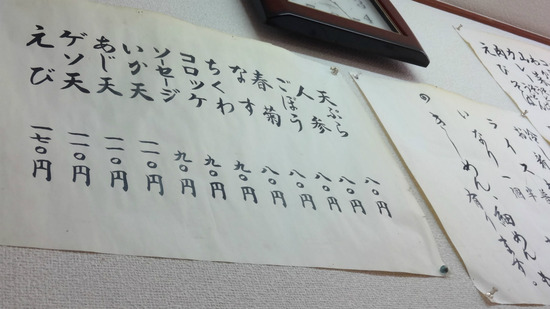 天ぷら 八〇円
人参 八〇円
ごぼう 八〇円
春菊 八〇円
なす 八〇円
ちくわ 九〇円
コロッケ 九〇円
ソーセージ 九〇円
いか天 一一〇円
あじ天 一一〇円
ゲソ天 一一〇円
えび 一七〇円
ライス
いなり 一個
◎きしめん、細めん有ります。